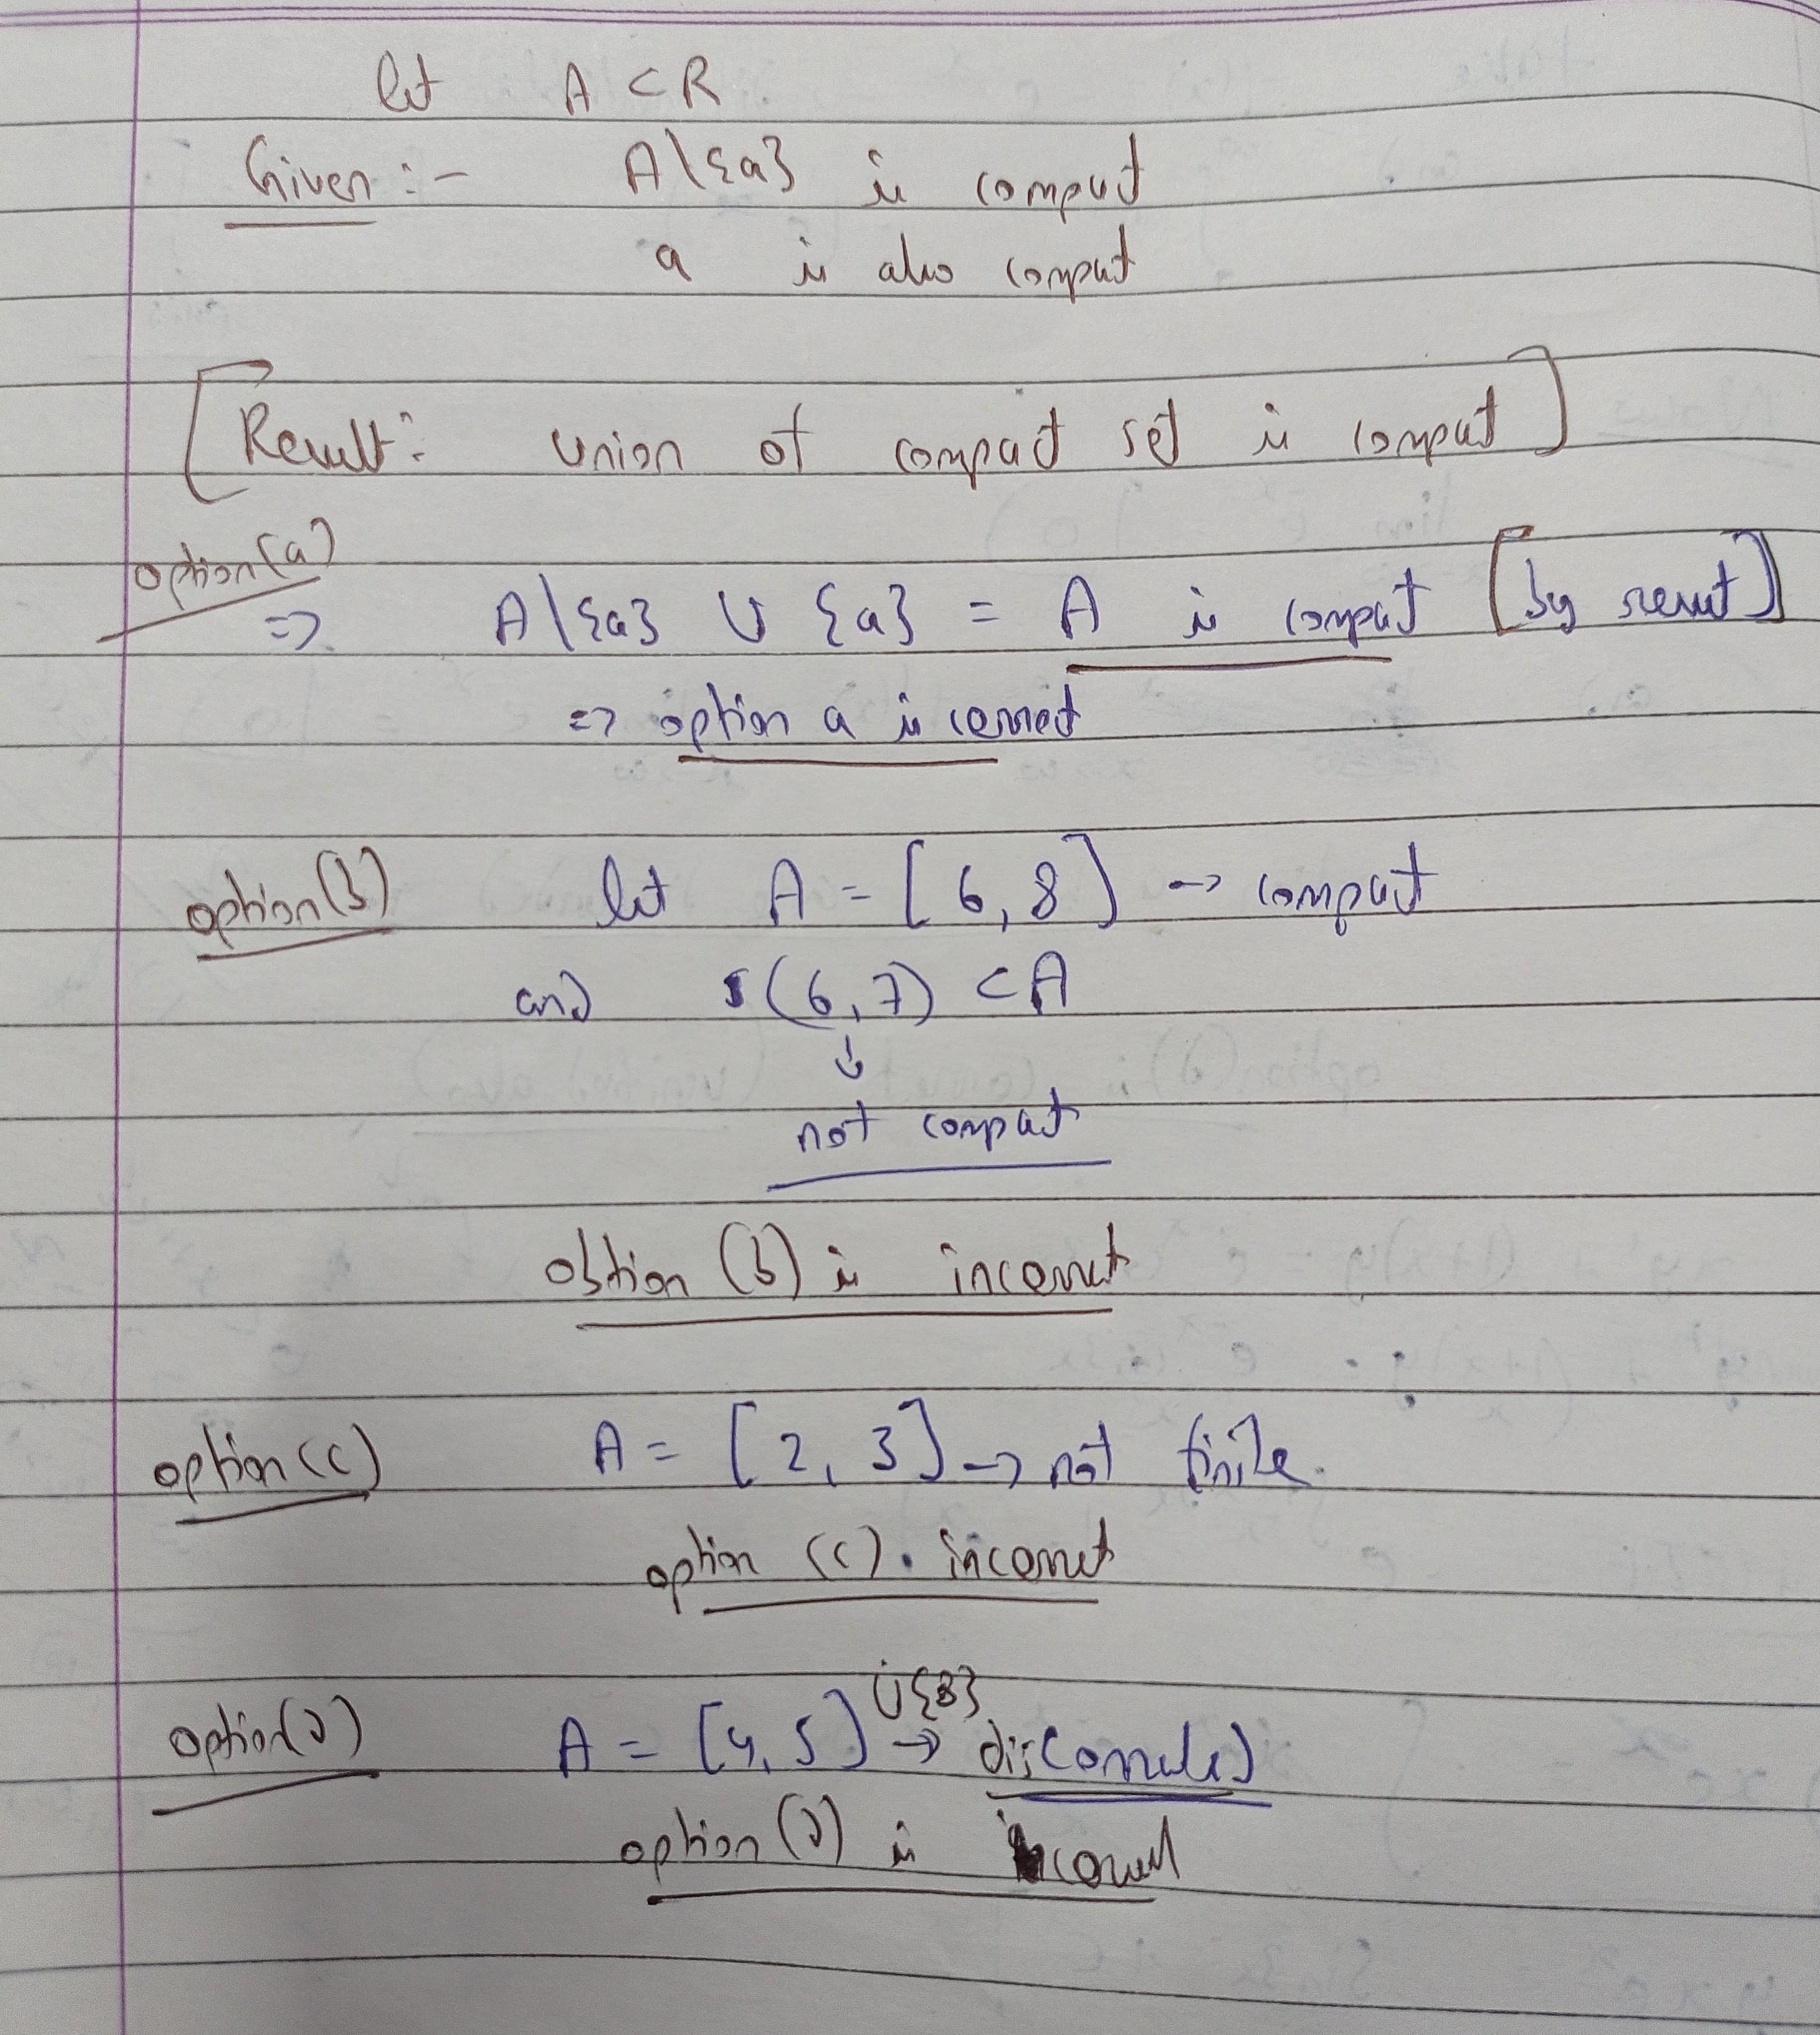 let A ⊂ R
Given :- A\{a} is compact
a is also compact
[Result: union of compact set is compact]
option(a)
=> A\{a} ∪ {a} = A is compact [by result]
=> option a is correct
option(b) let A = [6, 8] → compact
and (6, 7) ⊂ A
↓
not compact
obtion (b) is incorrect
option(c) A = [2, 3] → not finite.
option (c). incorrect
∪{8}
option(d) A = [4, 5] → disconnected
option(d) is incorrect